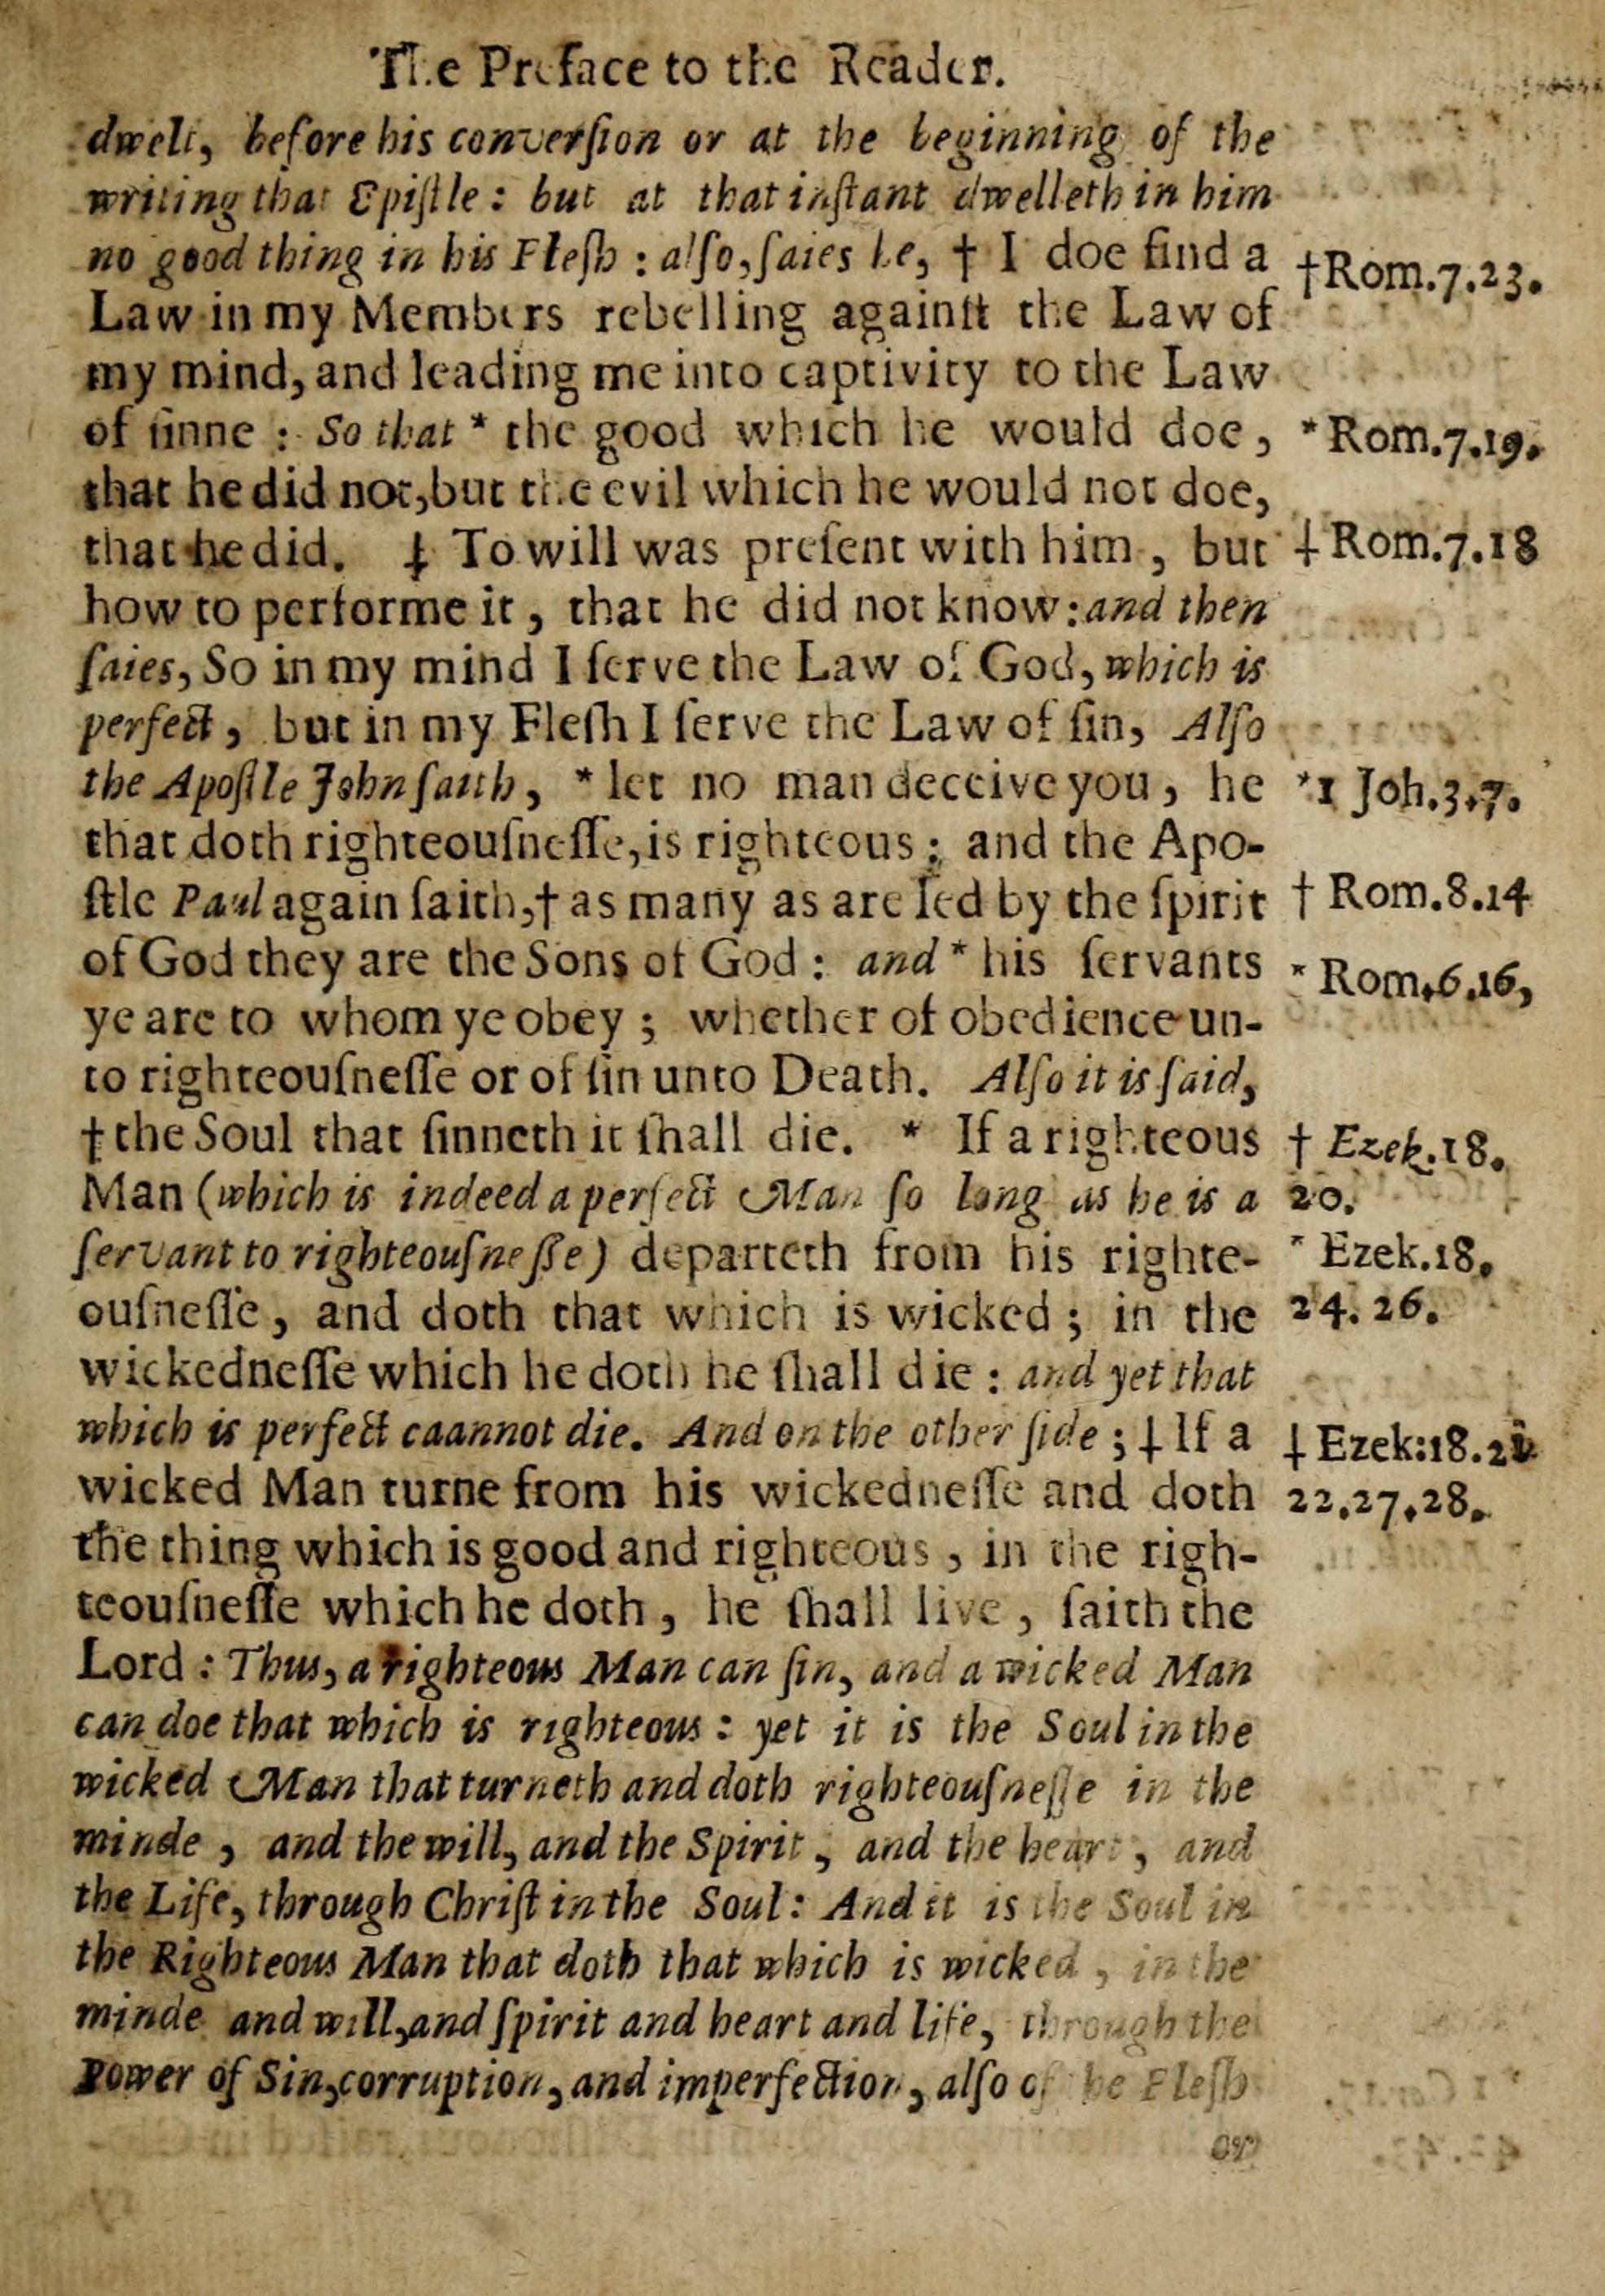 The Preface to the Reader.
dwelt, before his converſion or at the beginning of the
writing that Epiſtle: but at that inſtant dwelleth in him
no good thing in his Fleſh: alſo, ſaies he, † I doe find a
†Rom.7.23.
Law in my Members rebelling againſt the Law of
my mind, and leading me into captivity to the Law
of ſinne: So that * the good which he would doe,
*Rom.7.19.
that he did not, but the evil which he would not doe,
that he did. ‡ To will was preſent with him, but
‡Rom.7.18
how to performe it, that he did not know: and then
ſaies, So in my mind I ſerve the Law of God, which is
perfect, but in my Fleſh I ſerve the Law of ſin, Alſo
the Apoſtle John ſaith, * let no man deceive you, he
*1 Joh.3.7.
that doth righteouſneſſe, is righteous; and the Apo-
ſtle Paul again ſaith, † as many as are led by the ſpirit
† Rom.8.14
of God they are the Sons of God: and * his ſervants
* Rom.6.16,
ye are to whom ye obey; whether of obedience un-
to righteouſneſſe or of ſin unto Death. Alſo it is ſaid,
† the Soul that ſinneth it ſhall die. * If a righteous
† Ezek.18.
Man (which is indeed a perfect Man ſo long as he is a
20.
ſervant to righteouſneſſe) departeth from his righte-
* Ezek.18.
ouſneſſe, and doth that which is wicked; in the
24. 26.
wickedneſſe which he doth he ſhall die: and yet that
which is perfect caannot die. And on the other ſide; ‡ If a
‡ Ezek:18.21
wicked Man turne from his wickedneſſe and doth
22.27.28.
the thing which is good and righteous, in the righ-
teouſneſſe which he doth, he ſhall live, ſaith the
Lord: Thus, a righteous Man can ſin, and a wicked Man
can doe that which is righteous: yet it is the Soul in the
wicked Man that turneth and doth righteouſneſſe in the
minde, and the will, and the Spirit, and the heart, and
the Life, through Chriſt in the Soul: And it is the Soul in
the Righteous Man that doth that which is wicked, in the
minde and will, and ſpirit and heart and life, through the
Power of Sin, corruption, and imperfection, alſo of the Fleſh
or